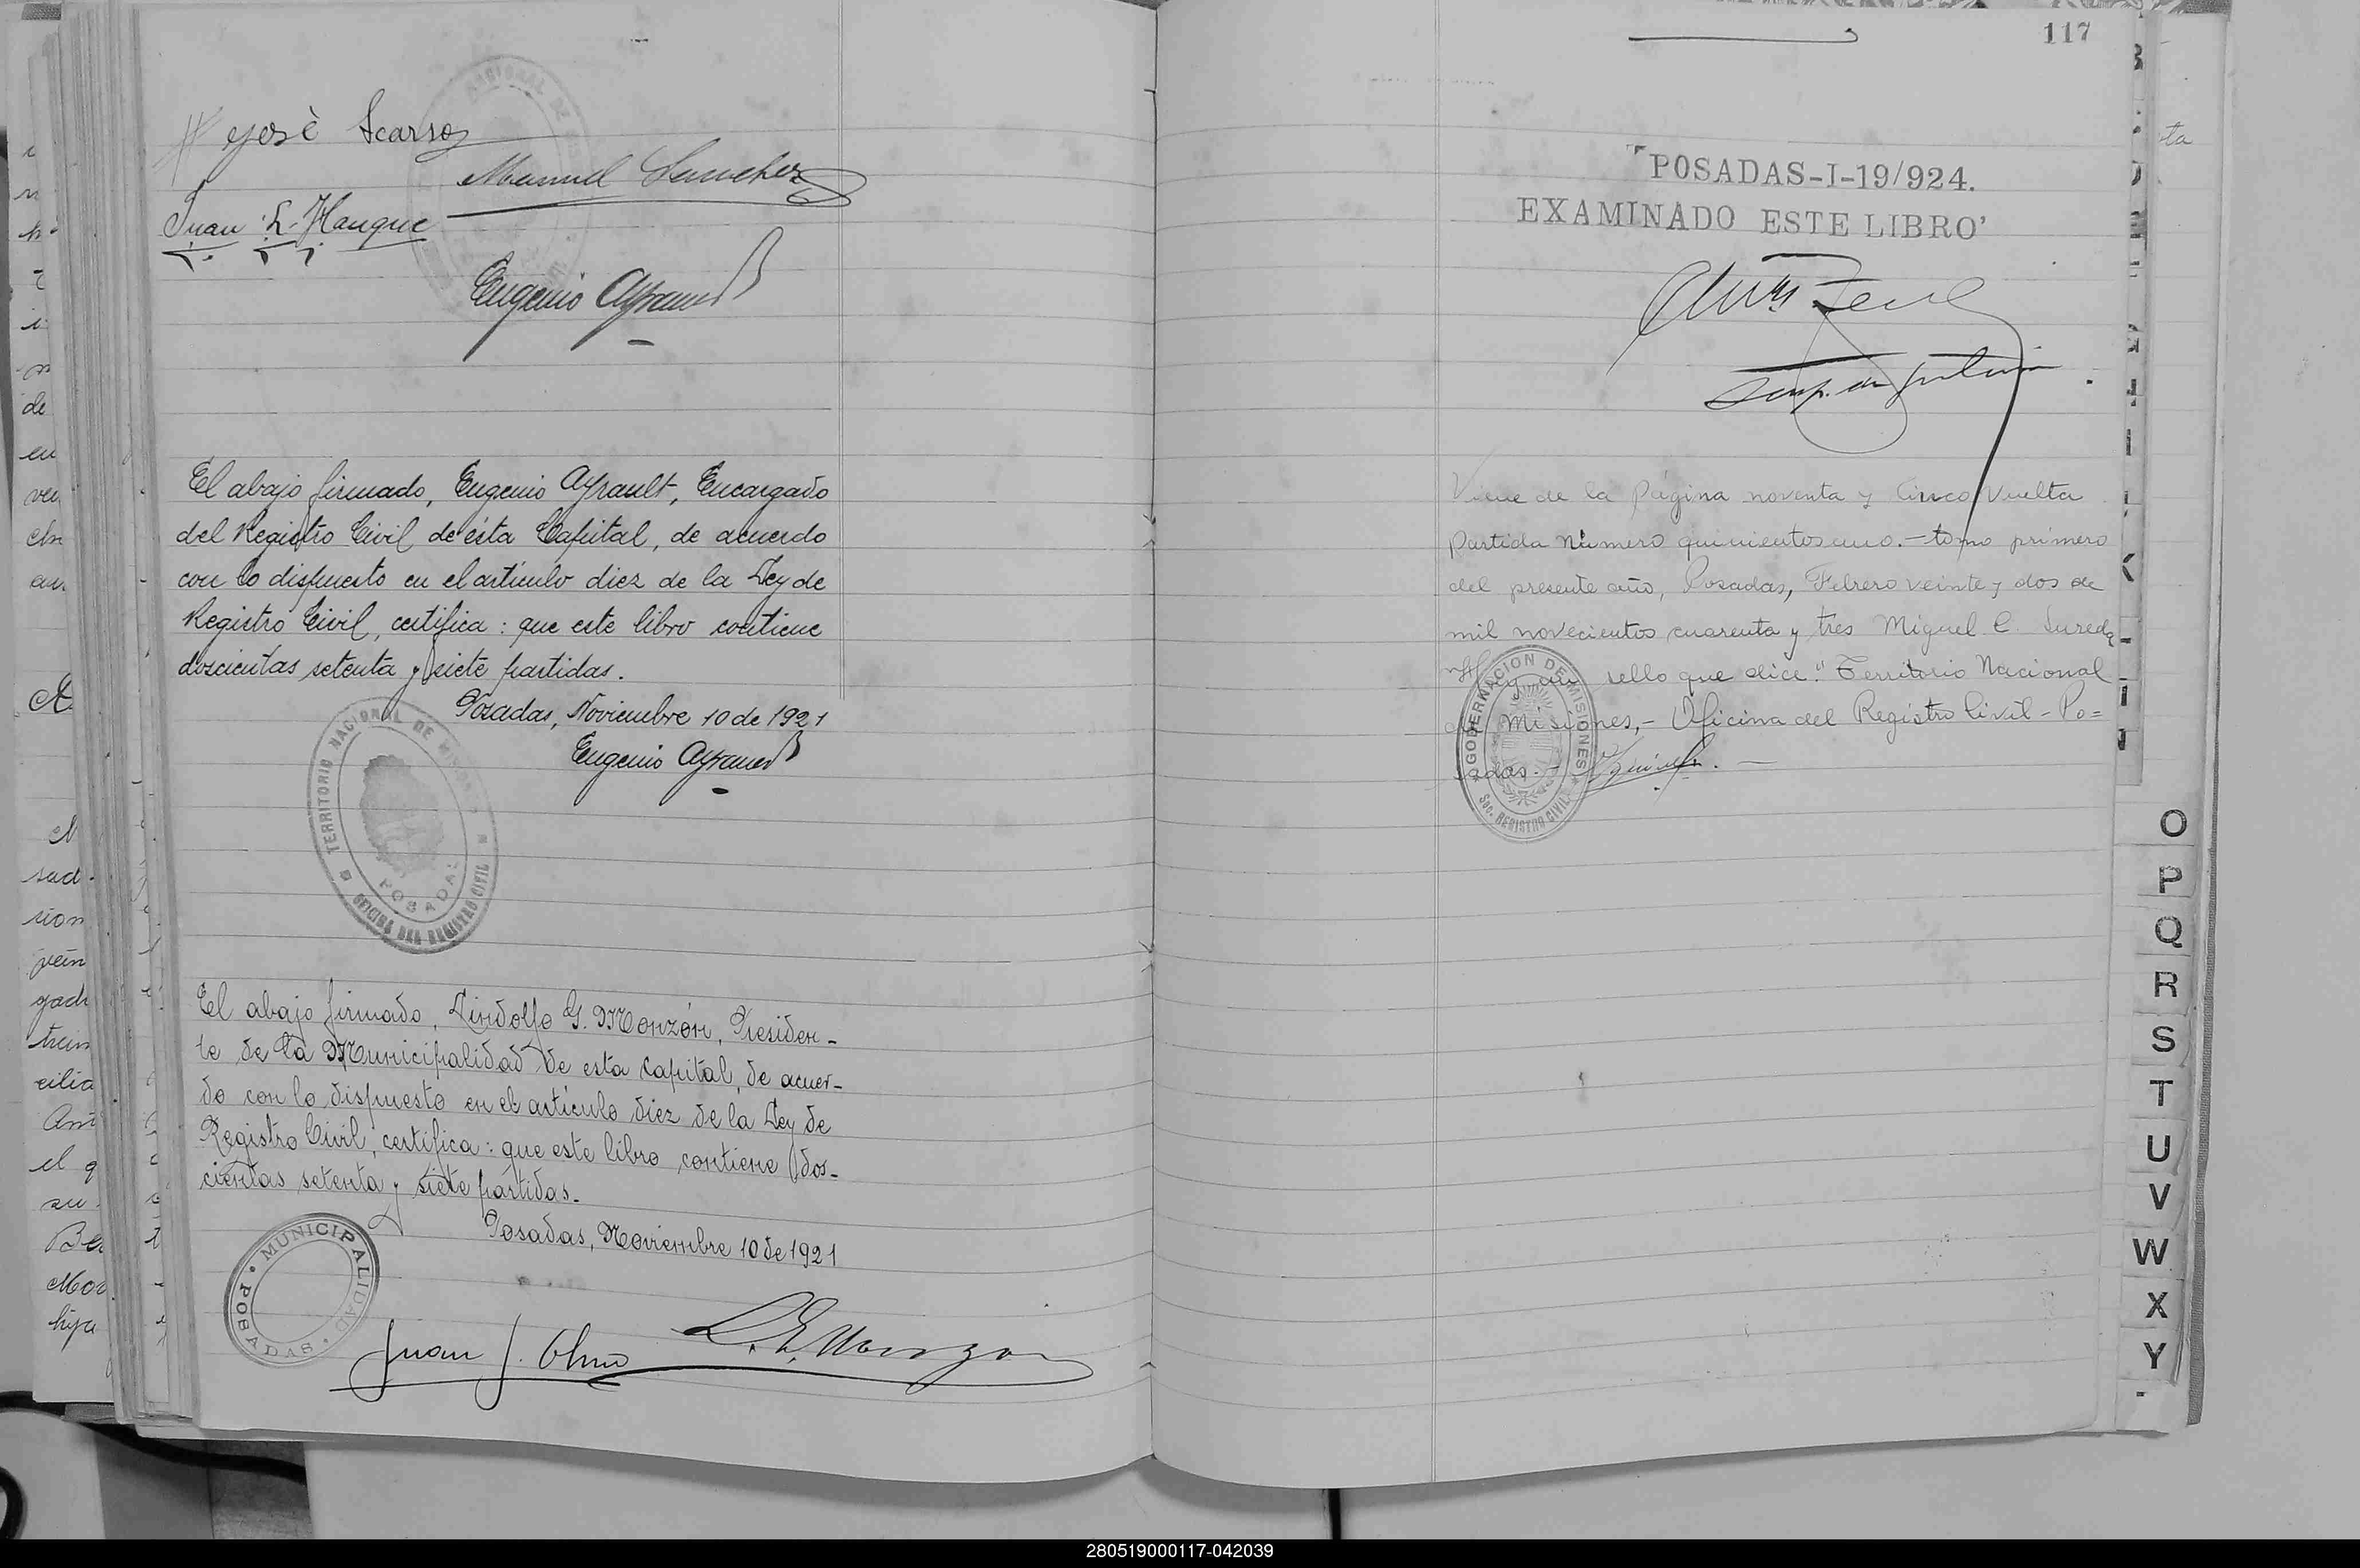 José Scarso
Manuel Sanchez
Juan L. Hauque
Eugenio Ayrault
El abajo firmado, Eugenio Ayrault, Encargado
del Registro Civil de ésta Capital, de acuerdo
con lo dispuesto en el artículo diez de la Ley de
Registro Civil, certifica: que este libro contiene
doscientas setenta y siete partidas.
Posadas, Noviembre 10 de 1921
Eugenio Ayrault
TERRITORIO NACIONAL DE MISIONES
POSADAS
OFICINA DEL REGISTRO CIVIL
El abajo firmado, Lindolfo G. Monzón, Presiden-
te de la Municipalidad de esta Capital, de acuer-
do con lo dispuesto en el artículo diez de la Ley de
Registro Civil, certifica: que este libro contiene dos-
cientas setenta y siete partidas.-
Posadas, Noviembre 10 de 1921
MUNICIPALIDAD
POSADAS
Juan J.
L. G. Monzon
117
POSADAS-I-19/924.
EXAMINADO ESTE LIBRO
Viene de la Página noventa y Cinco Vuelta
Partida Número quinientos uno.- tomo primero
del presente año, Posadas, Febrero veinte y dos de
mil novecientos cuarenta y tres Miguel C. Sureda
hay un sello que dice: "Territorio Nacional
de Misiones,- Oficina del Registro Civil - Po=
sadas.-
GOBERNACION DE MISIONES
Sec. REGISTRO CIVIL
O
P
Q
R
S
T
U
V
W
X
Y
280519000117-042039